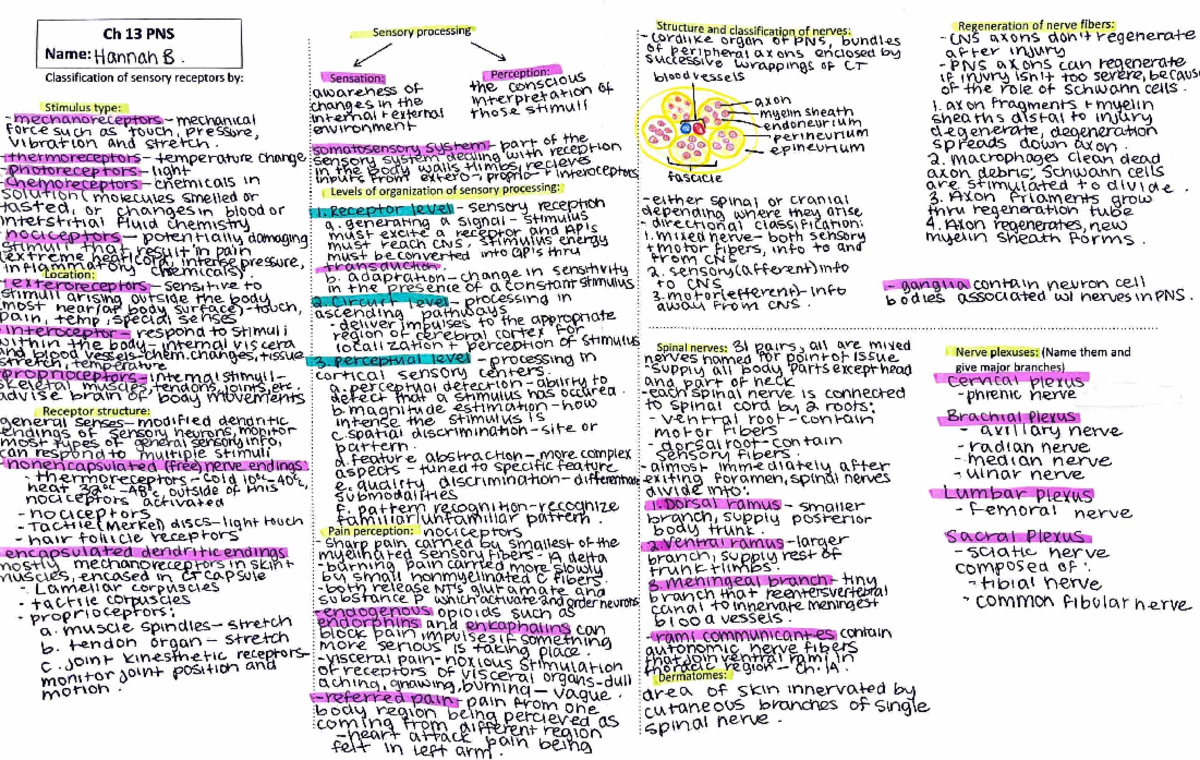 Ch 13 PNS
Name: Hannah B.
Classification of sensory receptors by:
Stimulus type:
- mechanoreceptors - mechanical
force such as touch, pressure,
vibration and stretch.
- thermoreceptors - temperature change
- photoreceptors - light
- chemoreceptors - chemicals in
solution (molecules smelled or
tasted, or changes in blood or
interstitial fluid chemistry
- nociceptors - potentially damaging
stimuli that result in pain
(extreme heat/cold, intense pressure,
inflammatory chemicals).
Location:
- exteroreceptors - sensitive to
stimuli arising outside the body
(most near/at body surface) - touch,
pain, temp, special senses
- interoceptor - respond to stimuli
within the body - internal viscera
and blood vessels - chem. changes, tissue
stretch, temperature
- proprioceptors - internal stimuli -
skeletal muscles, tendons, joints, etc.
advise brain of body movements
Receptor structure:
general senses - modified dendritic
endings of sensory neurons, monitor
most types of general sensory info,
can respond to multiple stimuli
- nonencapsulated (free) nerve endings
- thermoreceptors - cold 10°-40°,
heat 32°-48°, outside of this
nociceptors activated
- nociceptors
- Tactile (Merkel) discs - light touch
- hair follicle receptors
- encapsulated dendritic endings
mostly mechanoreceptors in skin +
muscles, encased in CT capsule
- Lamellar corpuscles
- tactile corpuscles
- proprioceptors:
a. muscle spindles - stretch
b. tendon organ - stretch
c. joint kinesthetic receptors -
monitor joint position and
motion.
Sensory processing
Sensation:
awareness of
changes in the
internal + external
environment
Perception:
the conscious
interpretation of
those stimuli
somatosensory system - part of the
sensory system dealing with reception
in the body walls + limbs, recieves
inputs from extero-, proprio- + interoceptors
Levels of organization of sensory processing:
1. Receptor level - sensory reception
a. generating a signal - stimulus
must excite a receptor and AP's
must reach CNS, stimulus energy
must be converted into GP's thru
transduction.
b. adaptation - change in sensitivity
in the presence of a constant stimulus
2. Circuit level - processing in
ascending pathways
- deliver impulses to the appropriate
region of cerebral cortex for
localization + perception of stimulus
3. perceptual level - processing in
cortical sensory centers.
a. perceptual detection - ability to
detect that a stimulus has occured.
b. magnitude estimation - how
intense the stimulus is
c. spatial discrimination - site or
pattern.
d. feature abstraction - more complex
aspects - tuned to specific feature
e. quality discrimination - differentiate
submodalities
f. pattern recognition - recognize
familiar/unfamiliar pattern.
Pain perception: nociceptors
- sharp pain carried by smallest of the
myelinated sensory fibers - A delta
- burning pain carried more slowly
by small nonmyelinated C fibers.
- both release NT's glutamate and
substance P which activate 2nd order neurons
- endogenous opioids such as
endorphins and enkaphalins can
block pain impulses if something
more serious is taking place.
- visceral pain - noxious stimulation
of receptors of visceral organs - dull
aching, gnawing, burning - vague.
- referred pain - pain from one
body region being percieved as
coming from different region
- heart attack pain being
felt in left arm.
Structure and classification of nerves:
- cordlike organ of PNS, bundles
of peripheral axons enclosed by
successive wrappings of CT
blood vessels
axon
myelin sheath
endoneurium
perineurium
epineurium
fascicle
- either spinal or cranial
depending where they arise
- directional classification:
1. mixed nerve - both sensory
+ motor fibers, info to and
from CNS
2. sensory (afferent) info
to CNS
3. motor (efferent) - info
away from CNS.
Spinal nerves: 31 pairs, all are mixed
nerves named for point of issue
- supply all body parts except head
and part of neck
- each spinal nerve is connected
to spinal cord by 2 roots:
- ventral root - contain
motor fibers
- dorsal root - contain
sensory fibers.
- almost immediately after
exiting foramen, spinal nerves
divide into:
1. Dorsal ramus - smaller
branch, supply posterior
body trunk.
2. ventral ramus - larger
branch, supply rest of
trunk + limbs.
3. meningeal branch - tiny
branch that reenters vertebral
canal to innervate meninges +
blood vessels.
- rami communicantes contain
autonomic nerve fibers
that join ventral rami in
thoracic region - ch. 14.
Dermatomes:
area of skin innervated by
cutaneous branches of single
spinal nerve.
Regeneration of nerve fibers:
- CNS axons don't regenerate
after injury
- PNS axons can regenerate
if injury isn't too severe, because
of the role of Schwann cells.
1. axon fragments + myelin
sheaths distal to injury
degenerate, degeneration
spreads down axon.
2. macrophages clean dead
axon debris; Schwann cells
are stimulated to divide.
3. Axon filaments grow
thru regeneration tube
4. Axon regenerates, new
myelin sheath forms.
- ganglia contain neuron cell
bodies associated w/ nerves in PNS.
Nerve plexuses: (Name them and
give major branches)
Cervical plexus
- phrenic nerve
Brachial Plexus
- axillary nerve
- radian nerve
- median nerve
- ulnar nerve
Lumbar plexus
- Femoral nerve
Sacral Plexus
- sciatic nerve
composed of:
- tibial nerve
- common fibular nerve